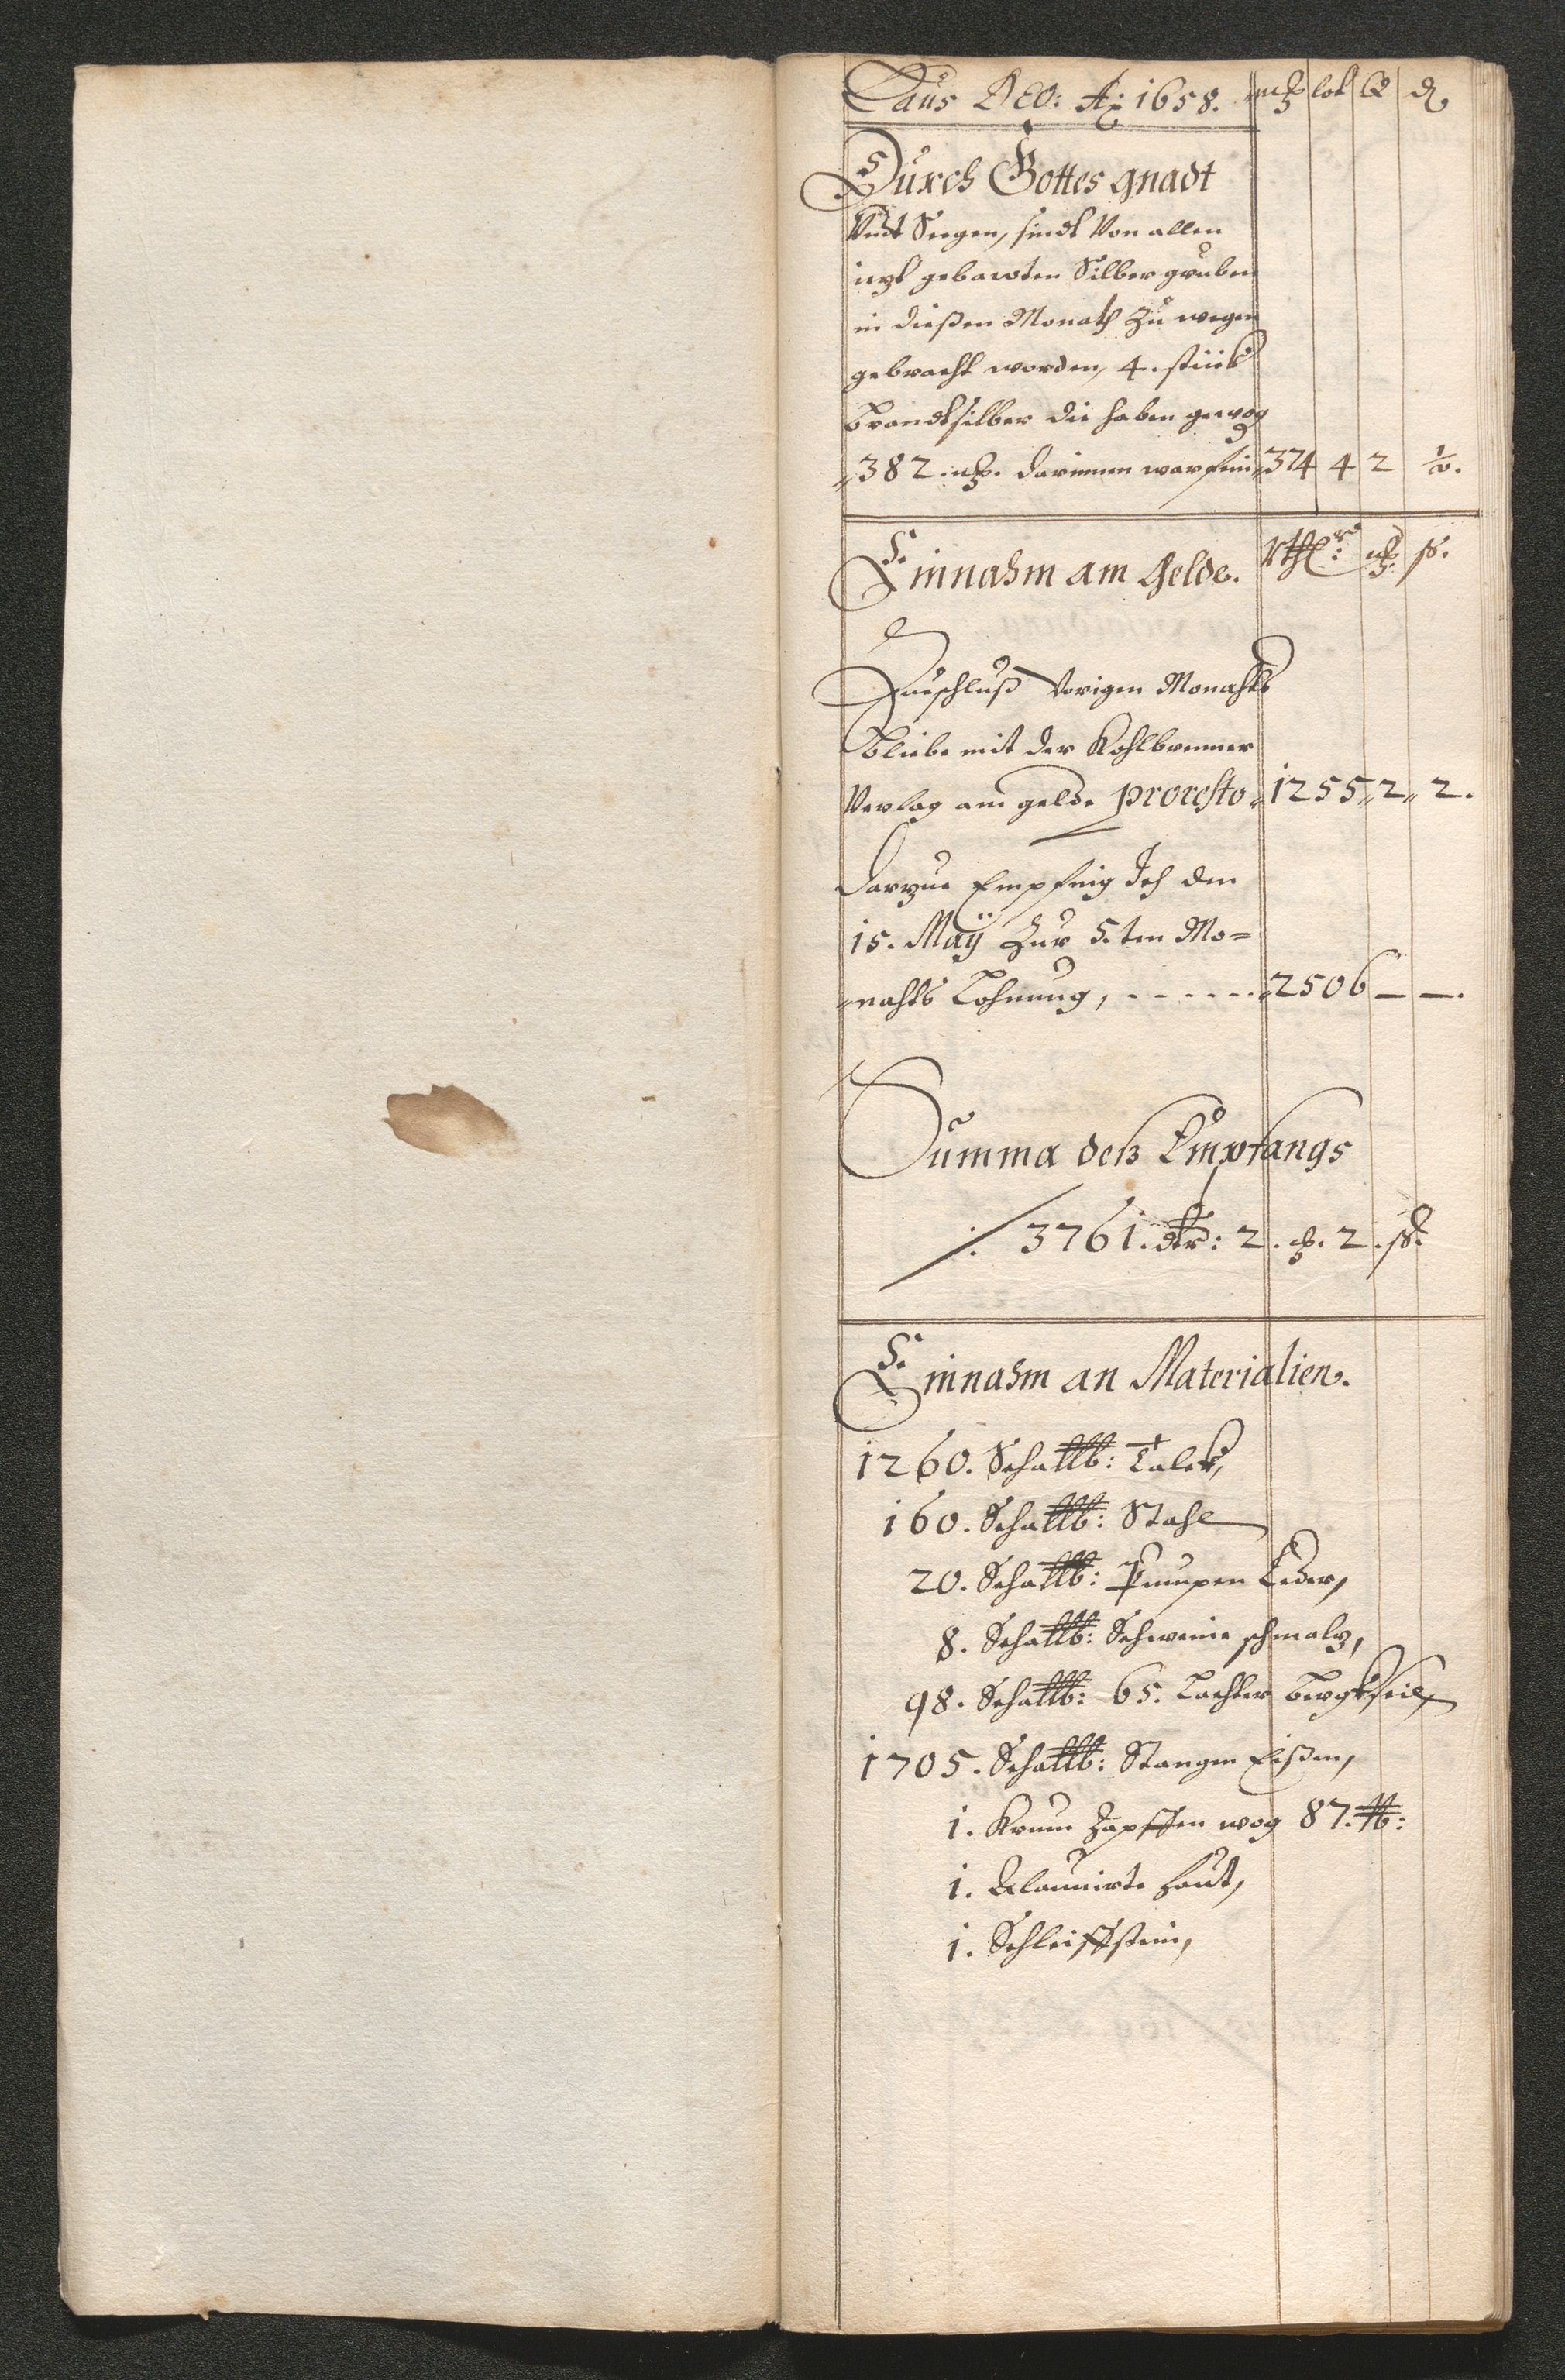 Laus DEO: Ao: 1658. mk lot Q ₰
Durch Gottes gnadt
Vndt Seegen, sindt Von allen
itzt gebawten Silbergruben
in dießen Monath Zu wegen
gebracht worden, 4. stück
Brandtsilber die haben gewog
382. mk. darinnen war fein 374 4 2 ½.
Einnahm am Gelde. Rthlr: mk ß.
Zueschluß Vorigen Monahts
Bliebe mit der Kohlbrenner
Verlag am gelde pro resto 1255 2 2.
Darzue Empfing Ich den
15. Maÿ Zur 5.ten Mo=
nahts Lohnung, - - - - - - 2506 — —.
Summa deß Empfangs
⁒ 3761. dlr: 2. mk. 2. ß.
Einnahm an Materialien.
1260. Schallb: Talck,
160. Schallb: Stahl
20. Schallb: Pumpen Leder,
8. Schallb: Schweine schmaltz,
98. Schallb: 65. Lachter Bergkseil,
1705. Schallb: Stangen Eißen,
1. Krum Zapffen wog 87. ℔:
1. Alaunirte Haut,
1. Schleiffstein,